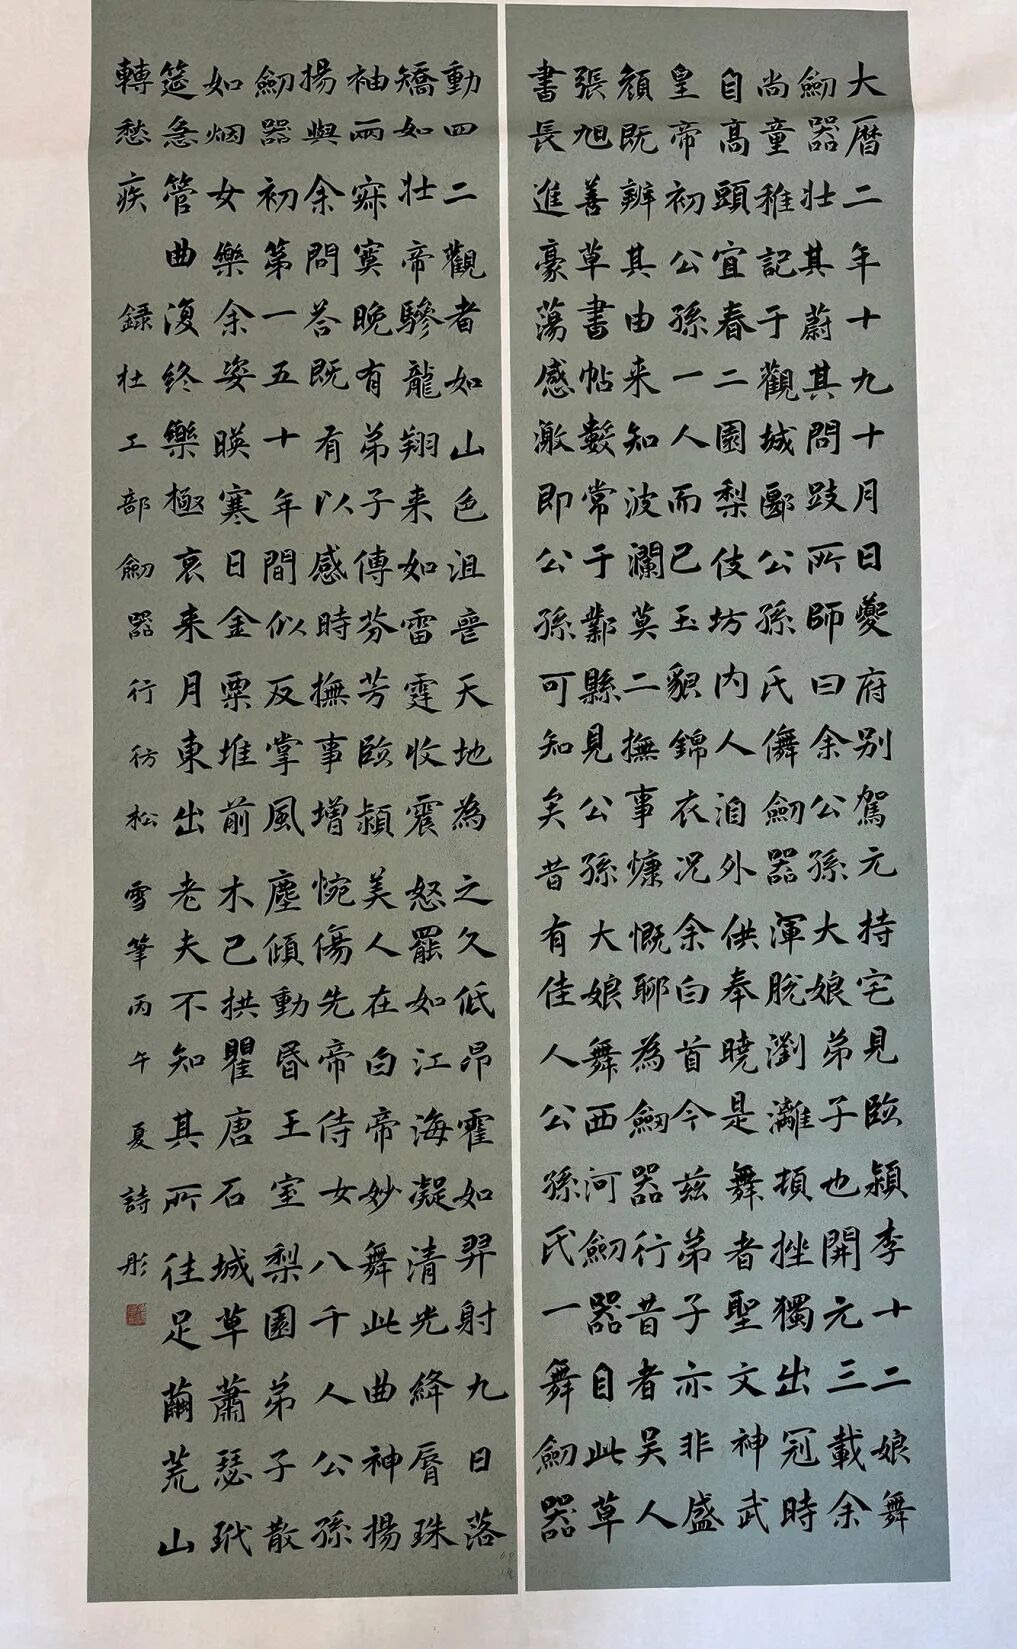 大曆二年十九十月日夔府别駕元持宅見臨潁李十二娘舞
劒器壯其蔚其問跂所師曰余公孫大娘弟子也開元三載余
尚童稚記于觀城郾公孫氏儛劒器渾脫瀏灕頓挫獨出冠時
自高頭宜春二園梨伎坊内人洎外供奉曉是舞者聖文神武
皇帝初公孫一人而已玉貌錦衣况余白首今茲弟子亦非盛
顏既辨其由来知波瀾莫二撫事慷慨聊為劒器行昔者吴人
張旭善草書帖數常于鄴縣見公孫大娘舞西河劒器自此草
書長進豪蕩感激即公孫可知矣昔有佳人公孫氏一舞劒器
動四二觀者如山色沮喪天地為之久低昂霍如羿射九日落
矯如壯帝驂龍翔来如雷霆收震怒罷如江海凝清光絳脣珠
袖兩寂寞晚有弟子傳芬芳臨潁美人在白帝妙舞此曲神揚
揚與余問答既有以感時撫事增惋傷先帝侍女八千人公孫
劒器初第一五十年間似反掌風塵傾動昏王室梨園弟子散
如烟女樂余姿暎寒日金粟堆前木已拱瞿唐石城草蕭瑟玳
筵急管曲復終樂極哀来月東出老夫不知其所往足繭荒山
轉愁疾 録杜工部劒器行仿松雪筆丙午夏詩彤